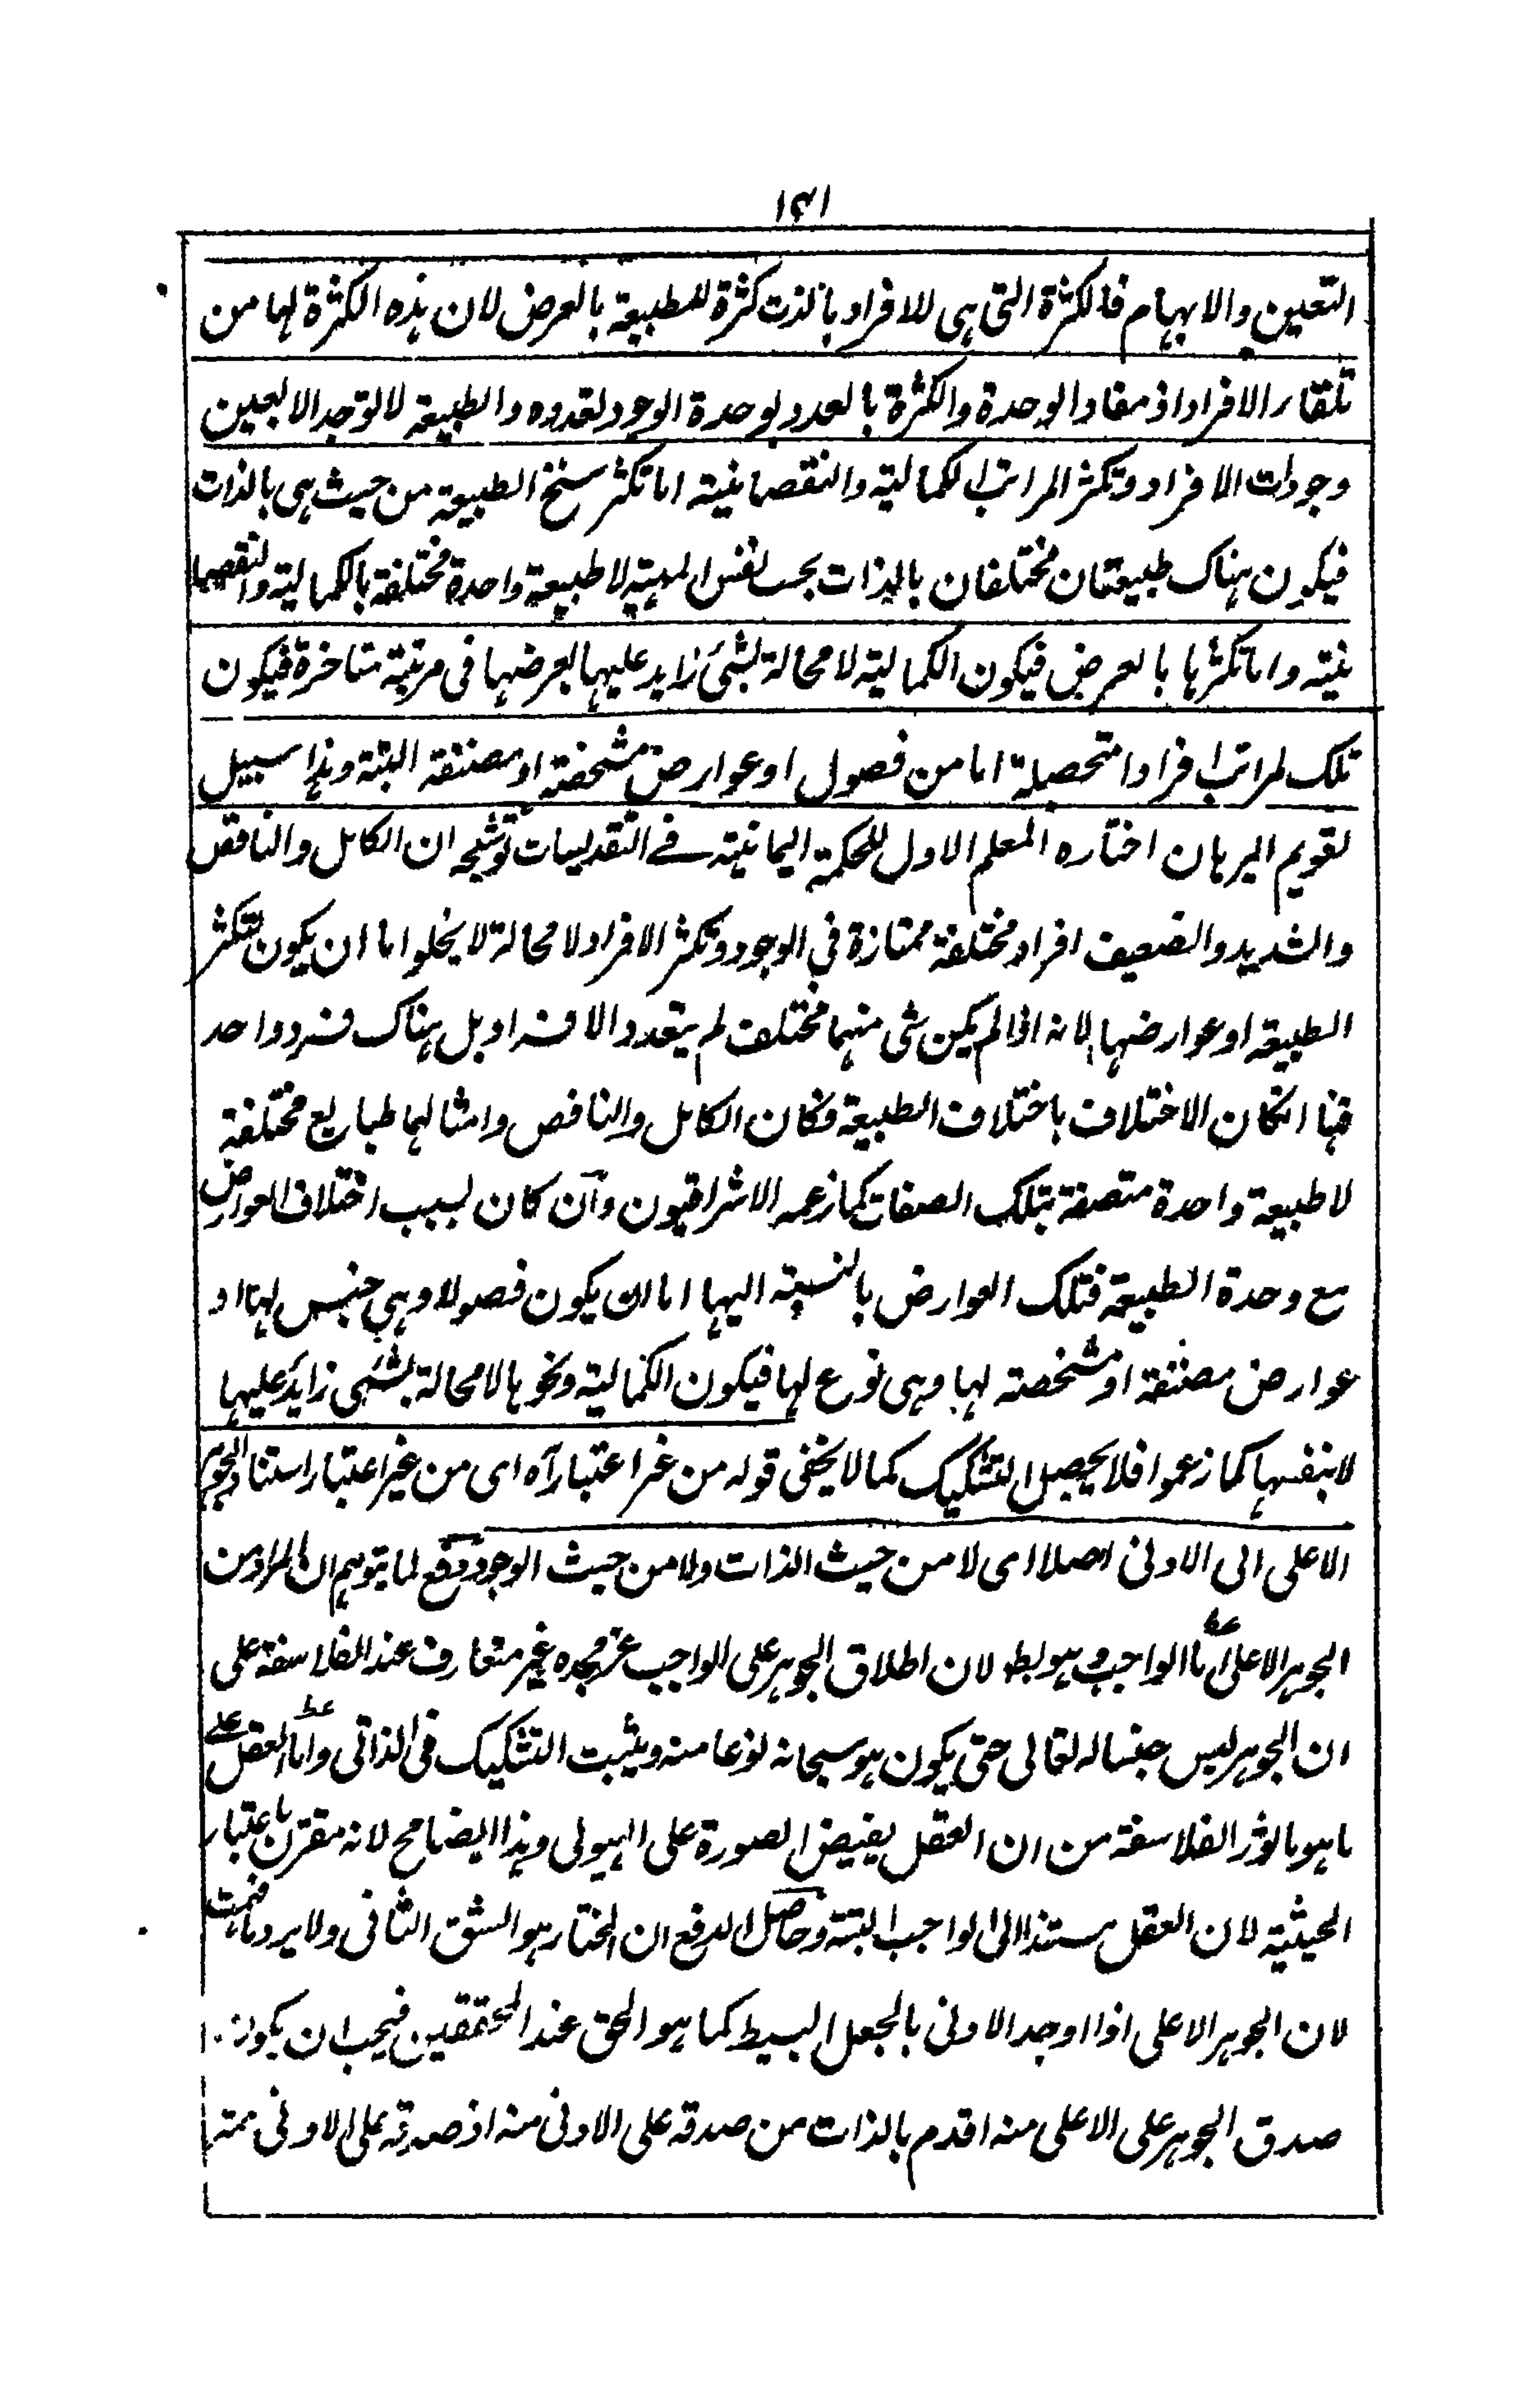 ۱۴۱
التعين والابهام فالكثرة التي هي للافراد بالذت كثرة للطبيعة بالعرض لان هذه الكثرة لها من
تلقاء الافراد اذ مفاد الوحدة والكثرة بالعدد لوحدة الوجود لتعدده والطبيعة لا توجد الا بعين
وجودات الافراد وتكثر المراتب الكمالية والنقصانية اما تكثر سنخ الطبيعة من حيث هي بالذات
فيكون هناك طبيعتان مختلفان بالذات بحسب نفس المهية لا طبيعة واحدة مختلفة بالكمالية والنقصا
نية واما تكثرها بالعرض فيكون الكمالية لا محالة بشئ زايد عليها بعرضها في مرتبة متاخرة فيكون
تلك المراتب افرادا متحصلة اما من فصول او عوارض مشخصة او مصنفة البتة وهذا سبيل
تقويم البرهان اختاره المعلم الاول للحكمة اليمانية في التقديسات توشيحه ان الكامل والناقص
والشديد والضعيف افراد مختلفة ممتازة في الوجود وتكثر الافراد لا محالة لا يخلوا اما ان يكون بتكثر
الطبيعة او عوارضها لانه اذا لم يكن شي منهما مختلف لم يتعدد الافراد بل هناك فرد واحد
فهنا انكان الاختلاف باختلاف الطبيعة فكان الكامل والناقص وامثالهما طبايع مختلفة
لا طبيعة واحدة متصفة بتلك الصفات كما زعمه الاشراقيون وان كان بسبب اختلاف العوارض
مع وحدة الطبيعة فتلك العوارض بالنسبة اليها اما ان يكون فصولا وهي جنس لها او
عوارض مصنفة او مشخصة لها وهي نوع لها فيكون الكمالية ونحوها لا محالة بشئ زايد عليها
لا بنفسها كما زعموا فلا يحصل التشكيك كما لا يخفى قوله من غير اعتبار آه اى من غير اعتبار استناد الجوهر
الاعلى الى الادنى اصلا اى لا من حيث الذات ولا من حيث الوجود دفع لما يتوهم ان المراد من
الجوهر الاعلى اما الواجب وهو بط لان اطلاق الجوهر على الواجب عز مجده غير متعارف عند الفلاسفة على
ان الجوهر ليس جنسا له تعالى حتى يكون هو سبحانه نوعا منه ويثبت التشكيك في الذاتي واما العقل على
ما هو ماثور الفلاسفة من ان العقل يفيض الصورة على الهيولى وهذا ايضا مح لانه مقترن باعتبار
الحيثية لان العقل مستندا الى الواجب البتة وحاصل الدفع ان المختار هو الشق الثاني ولا يرد ما فهمت
لان الجوهر الاعلى اذا اوجد الادنى بالجعل البسيط كما هو الحق عند المحققين فيجب ان يكون
صدق الجوهر على الاعلى منه اقدم بالذات من صدقه على الادنى منه اذ صدقه على الادنى